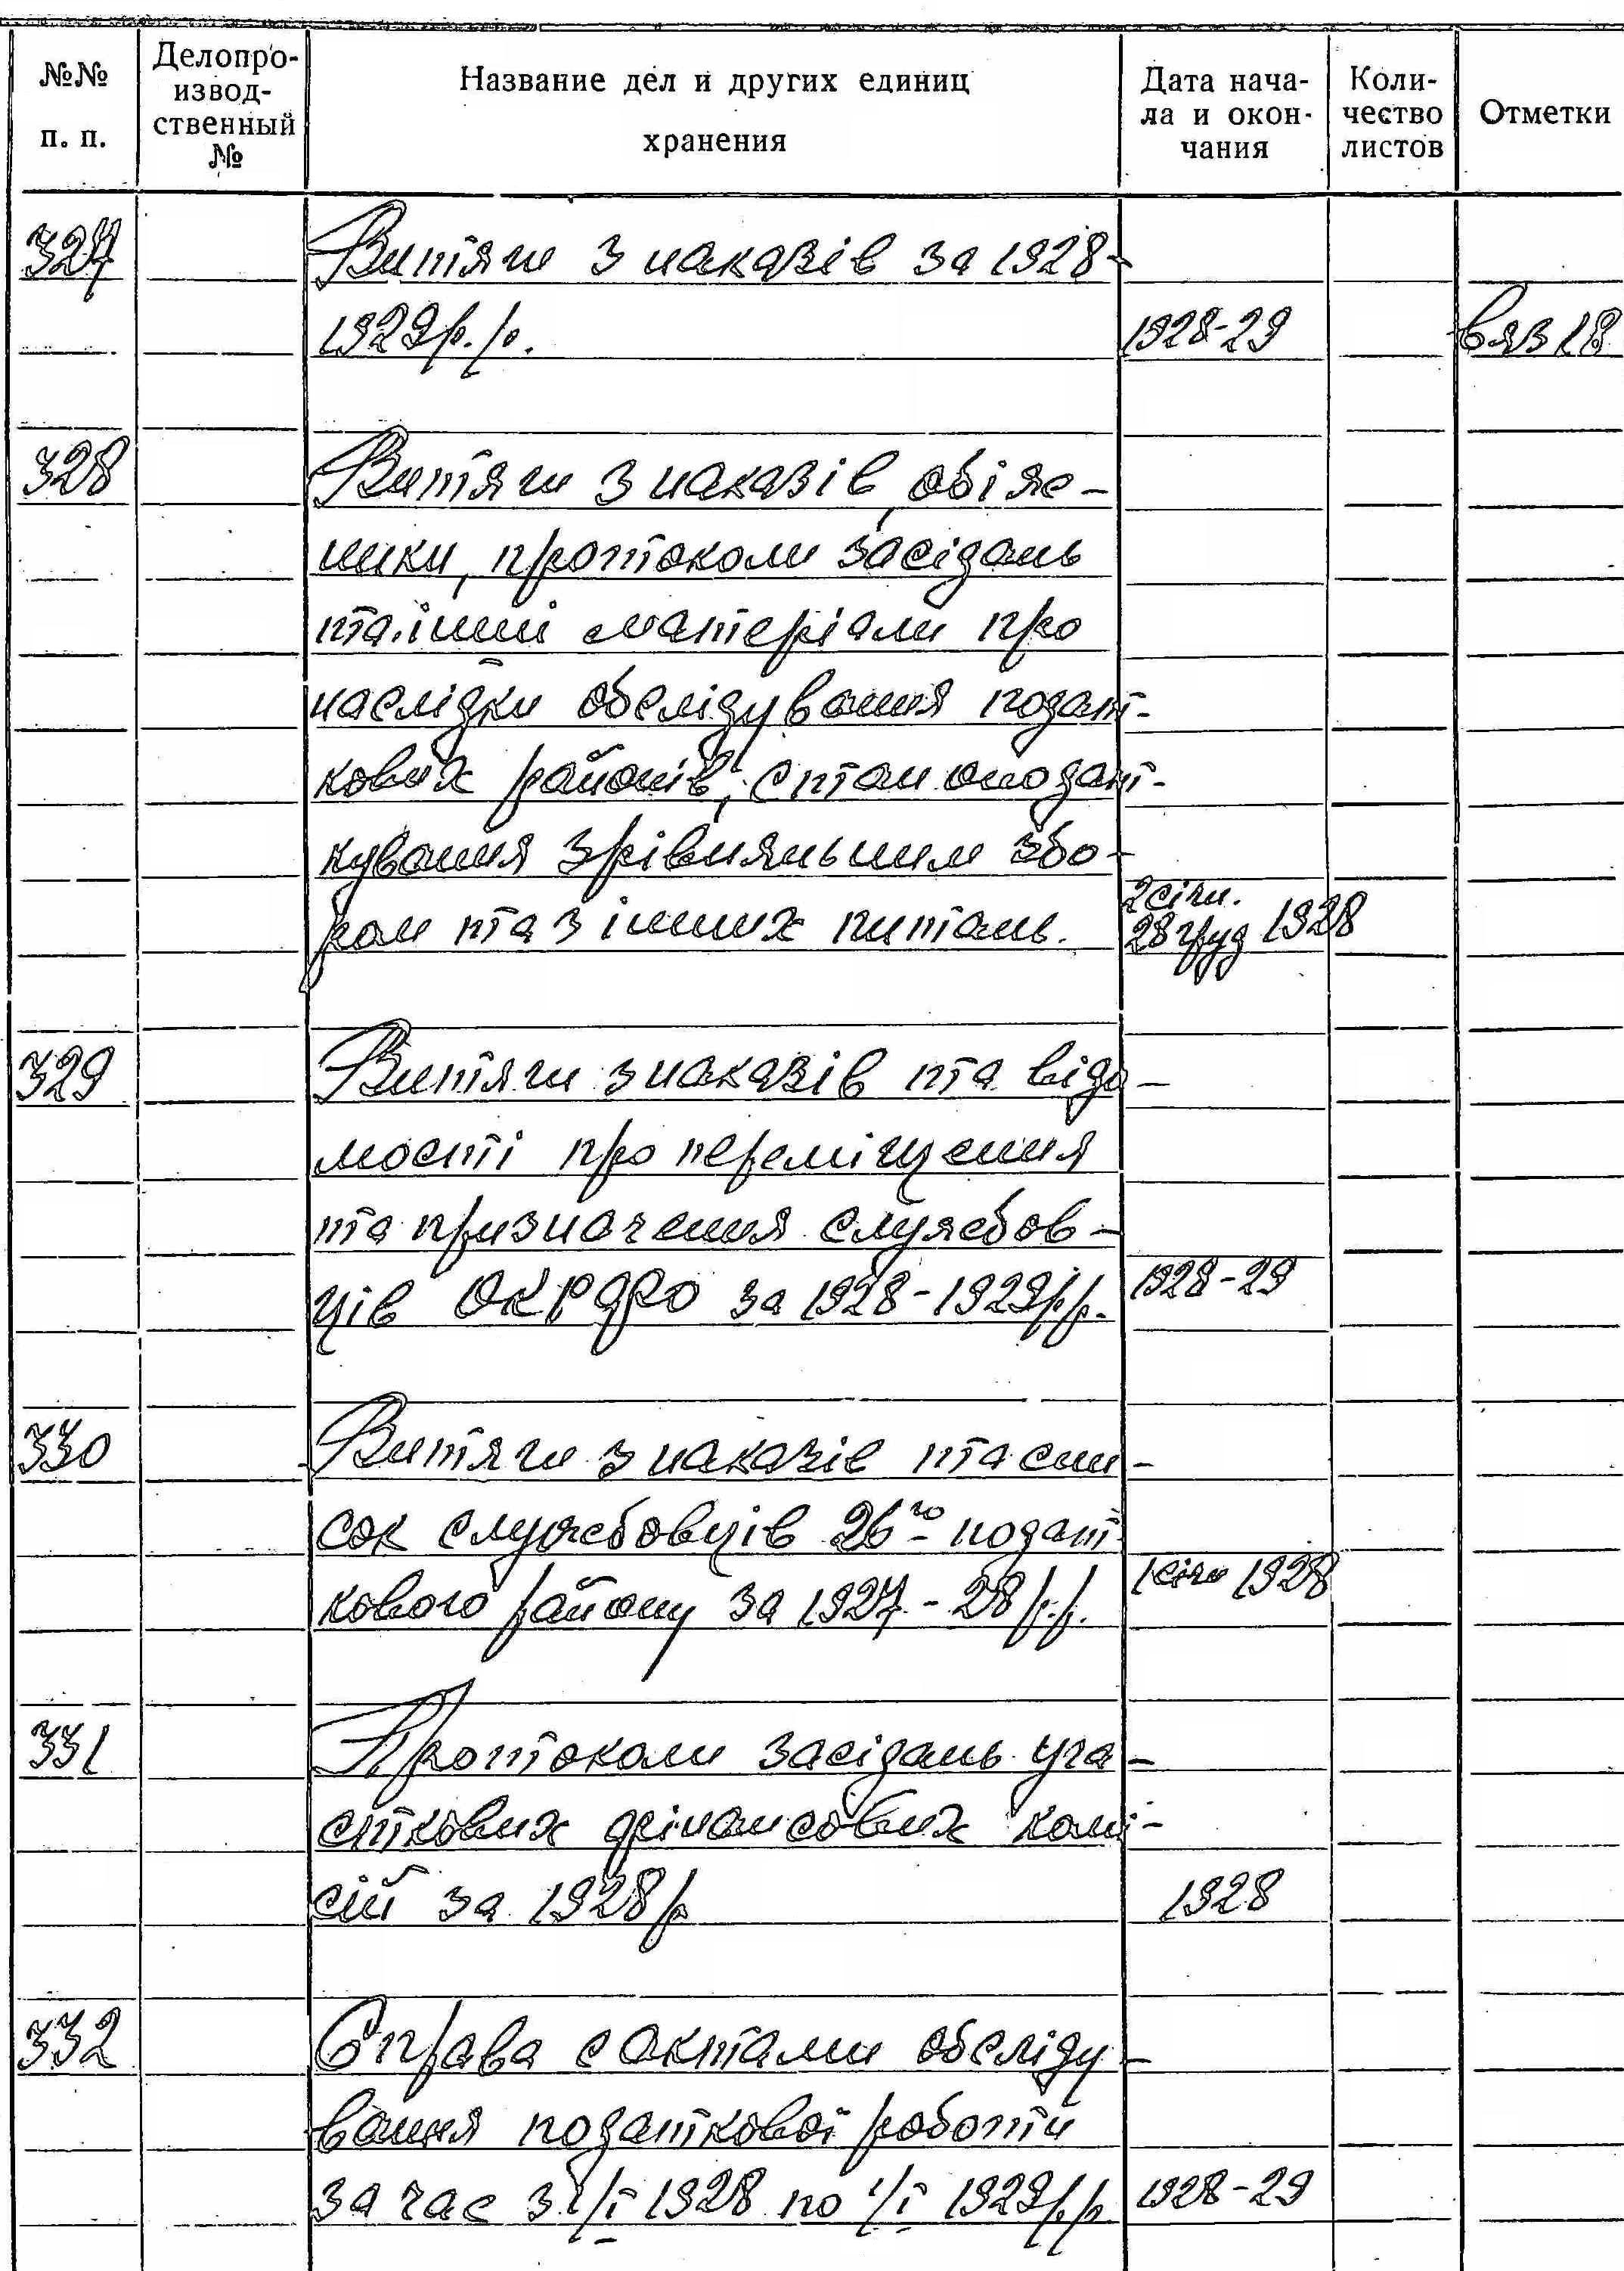 №№ п. п.
Делопроизводственный №
Название дел и других единиц хранения
Дата начала и окончания
Количество листов
Отметки
327 Витяги з наказів за 1928-
1929 р.р. 1928-29 вяз 18
328 Витяги з наказів, обіж-
ники, протоколи засідань
та інші матеріали про
наслідки обслідування подат-
кових районів, стан оподат-
кування зрівняльним збо-
2 січн.
ром та з інших питань. 28 груд 1928
329 Витяги з наказів та відо-
мості про переміщення
та призначення службов-
ців ОКРФО за 1928-1929 р.р. 1928-29
330 Витяги з наказів та спи-
сок службовців 26го подат-
кового району за 1927-28 р.р. 1 січн 1928
331 Протоколи засідань уча-
сткових фінансових комі-
сій за 1928 р 1928
332 Справа с актами обсліду-
вання податкової роботи
за час з 1/I 1928 по 1/I 1929 р.р 1928-29